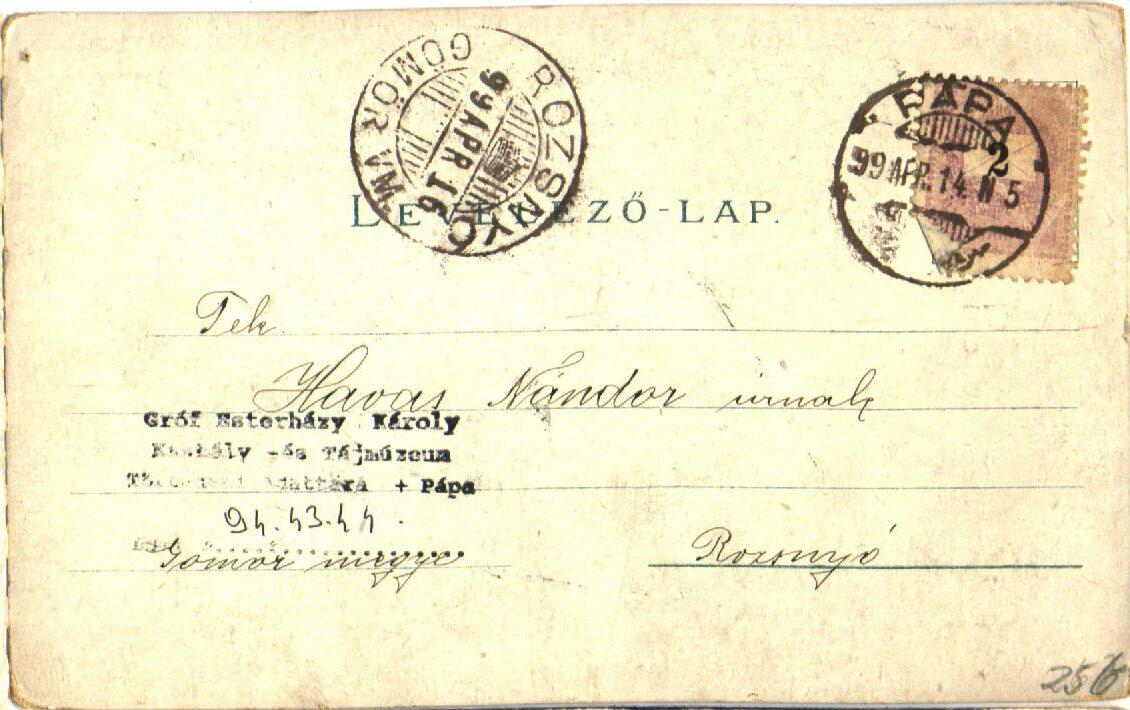 ROZSNYÓ
GÖMÖR VM
99 APR 16
PÁPA
99 APR. 14. N 5
2
LEVELEZŐ-LAP.
Tek
Havas Nándor urnak
Gróf Esterházy Károly
Kastély -és Tájmúzeum
Történeti Adattára + Pápa
94.43.44.
Gömör megye
Rozsnyó